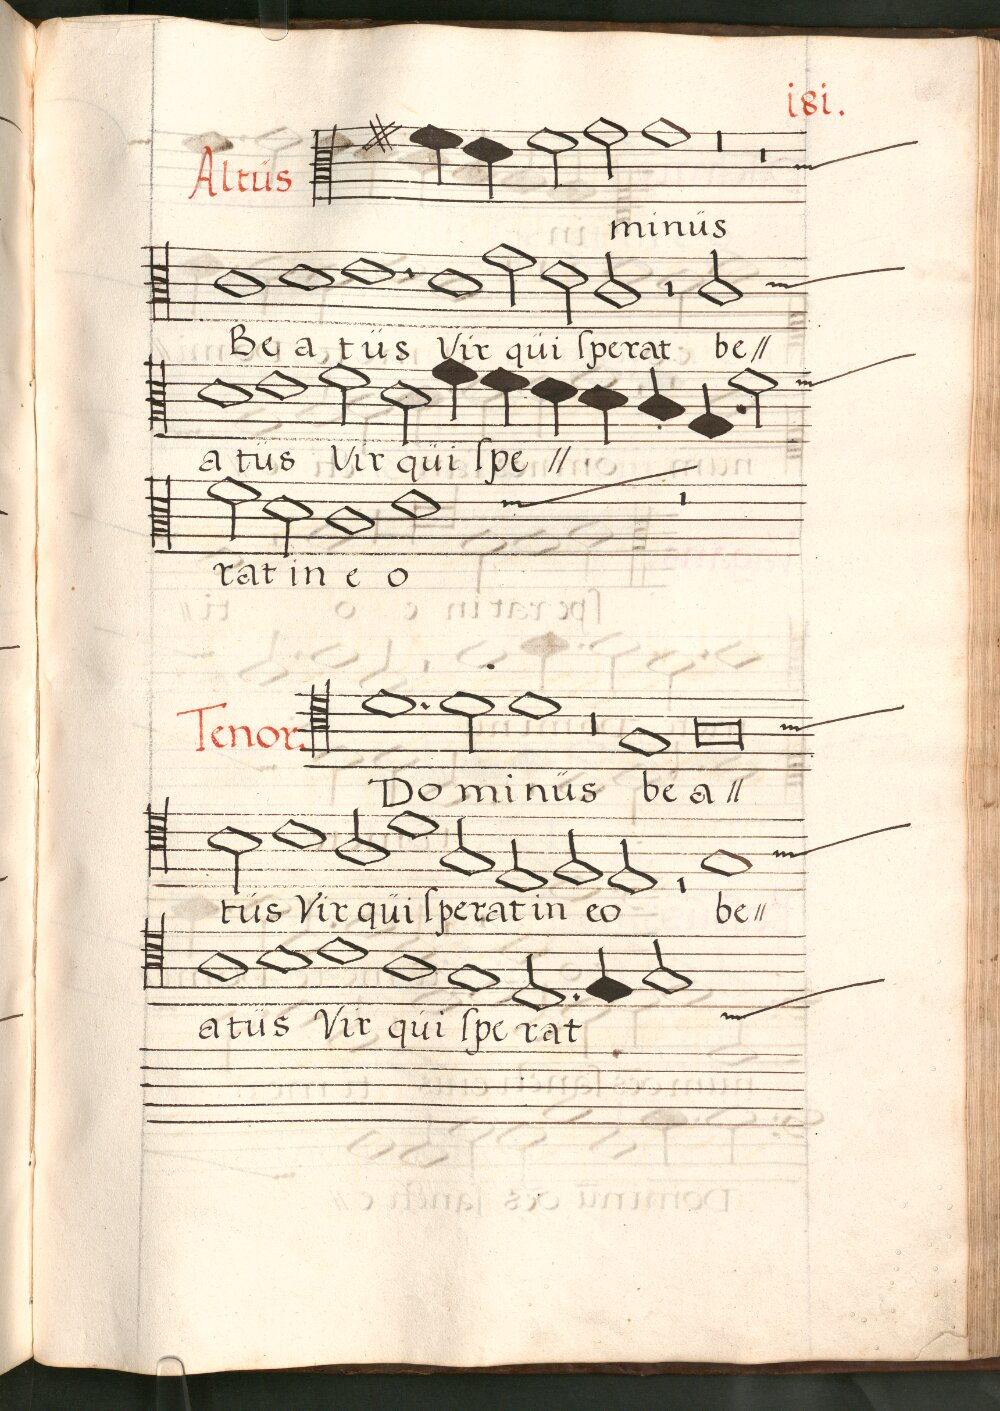 181.
Altüs
minüs
Be a tüs Vir qüi sperat be//
a tüs Vir qüi spe //
rat in e o
Tenor.
Do minüs be a //
tüs Vir qüi sperat in eo be//
a tüs Vir qüi spe rat